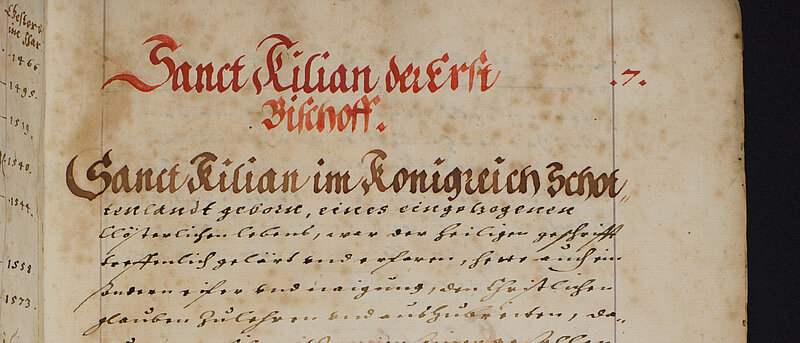 Closter
im Jar
1466
1495.
1519.
1540.
1544.
1558
1573.
Sanct Kilian der Erst
.7.
Bischoff.
Sanct Kilian im Konigreich Schot„
tenlandt geborn, eines eingezogenen
Clösterlichen lebens, war der heiligen geschrifft
treffenlich gelärt vnd erfaren, hette auch ein
sondern eifer vnd naigung, den Christlichen
glauben zulehren vnd auszubreiten, da„